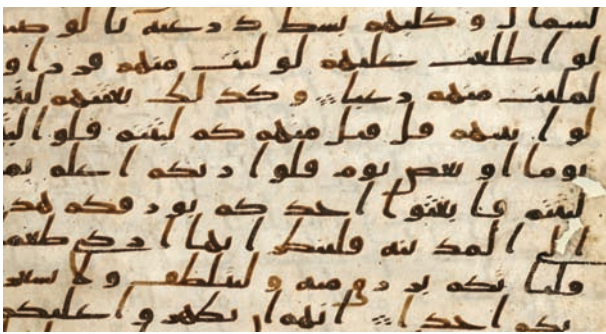 لشمال و كلبهم بسط ذرعيه بالوصيد
لو اطلعت عليهم لوليت منهم فرارا و
لمليت منهم رعبا و كذلك بعثنهم ليتسا
لوا بينهم قل قيل منهم كم لبثتم قلوا لبثنا
يوما او بعض يوم قلوا ربكم اعلم بما
لبثتم فابعثوا احدكم بورقكم هذه
الى المدينه فلينظر ايها ازكى طعما
فلياتكم برزق منه وليتلطف ولا يشعر
بكم احدا انهم ان يظهروا عليكم